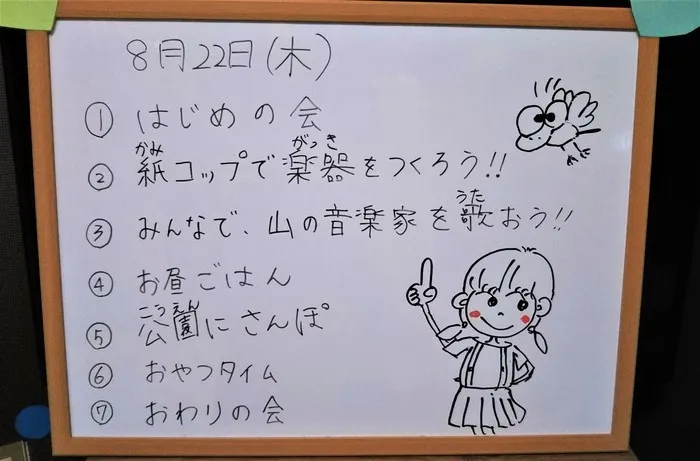 8月22日(木)
① はじめの会
② 紙コップで楽器をつくろう!!
かみ がっき
③ みんなで、山の音楽家を歌おう!!
うた
④ お昼ごはん
⑤ 公園にさんぽ
こうえん
⑥ おやつタイム
⑦ おわりの会